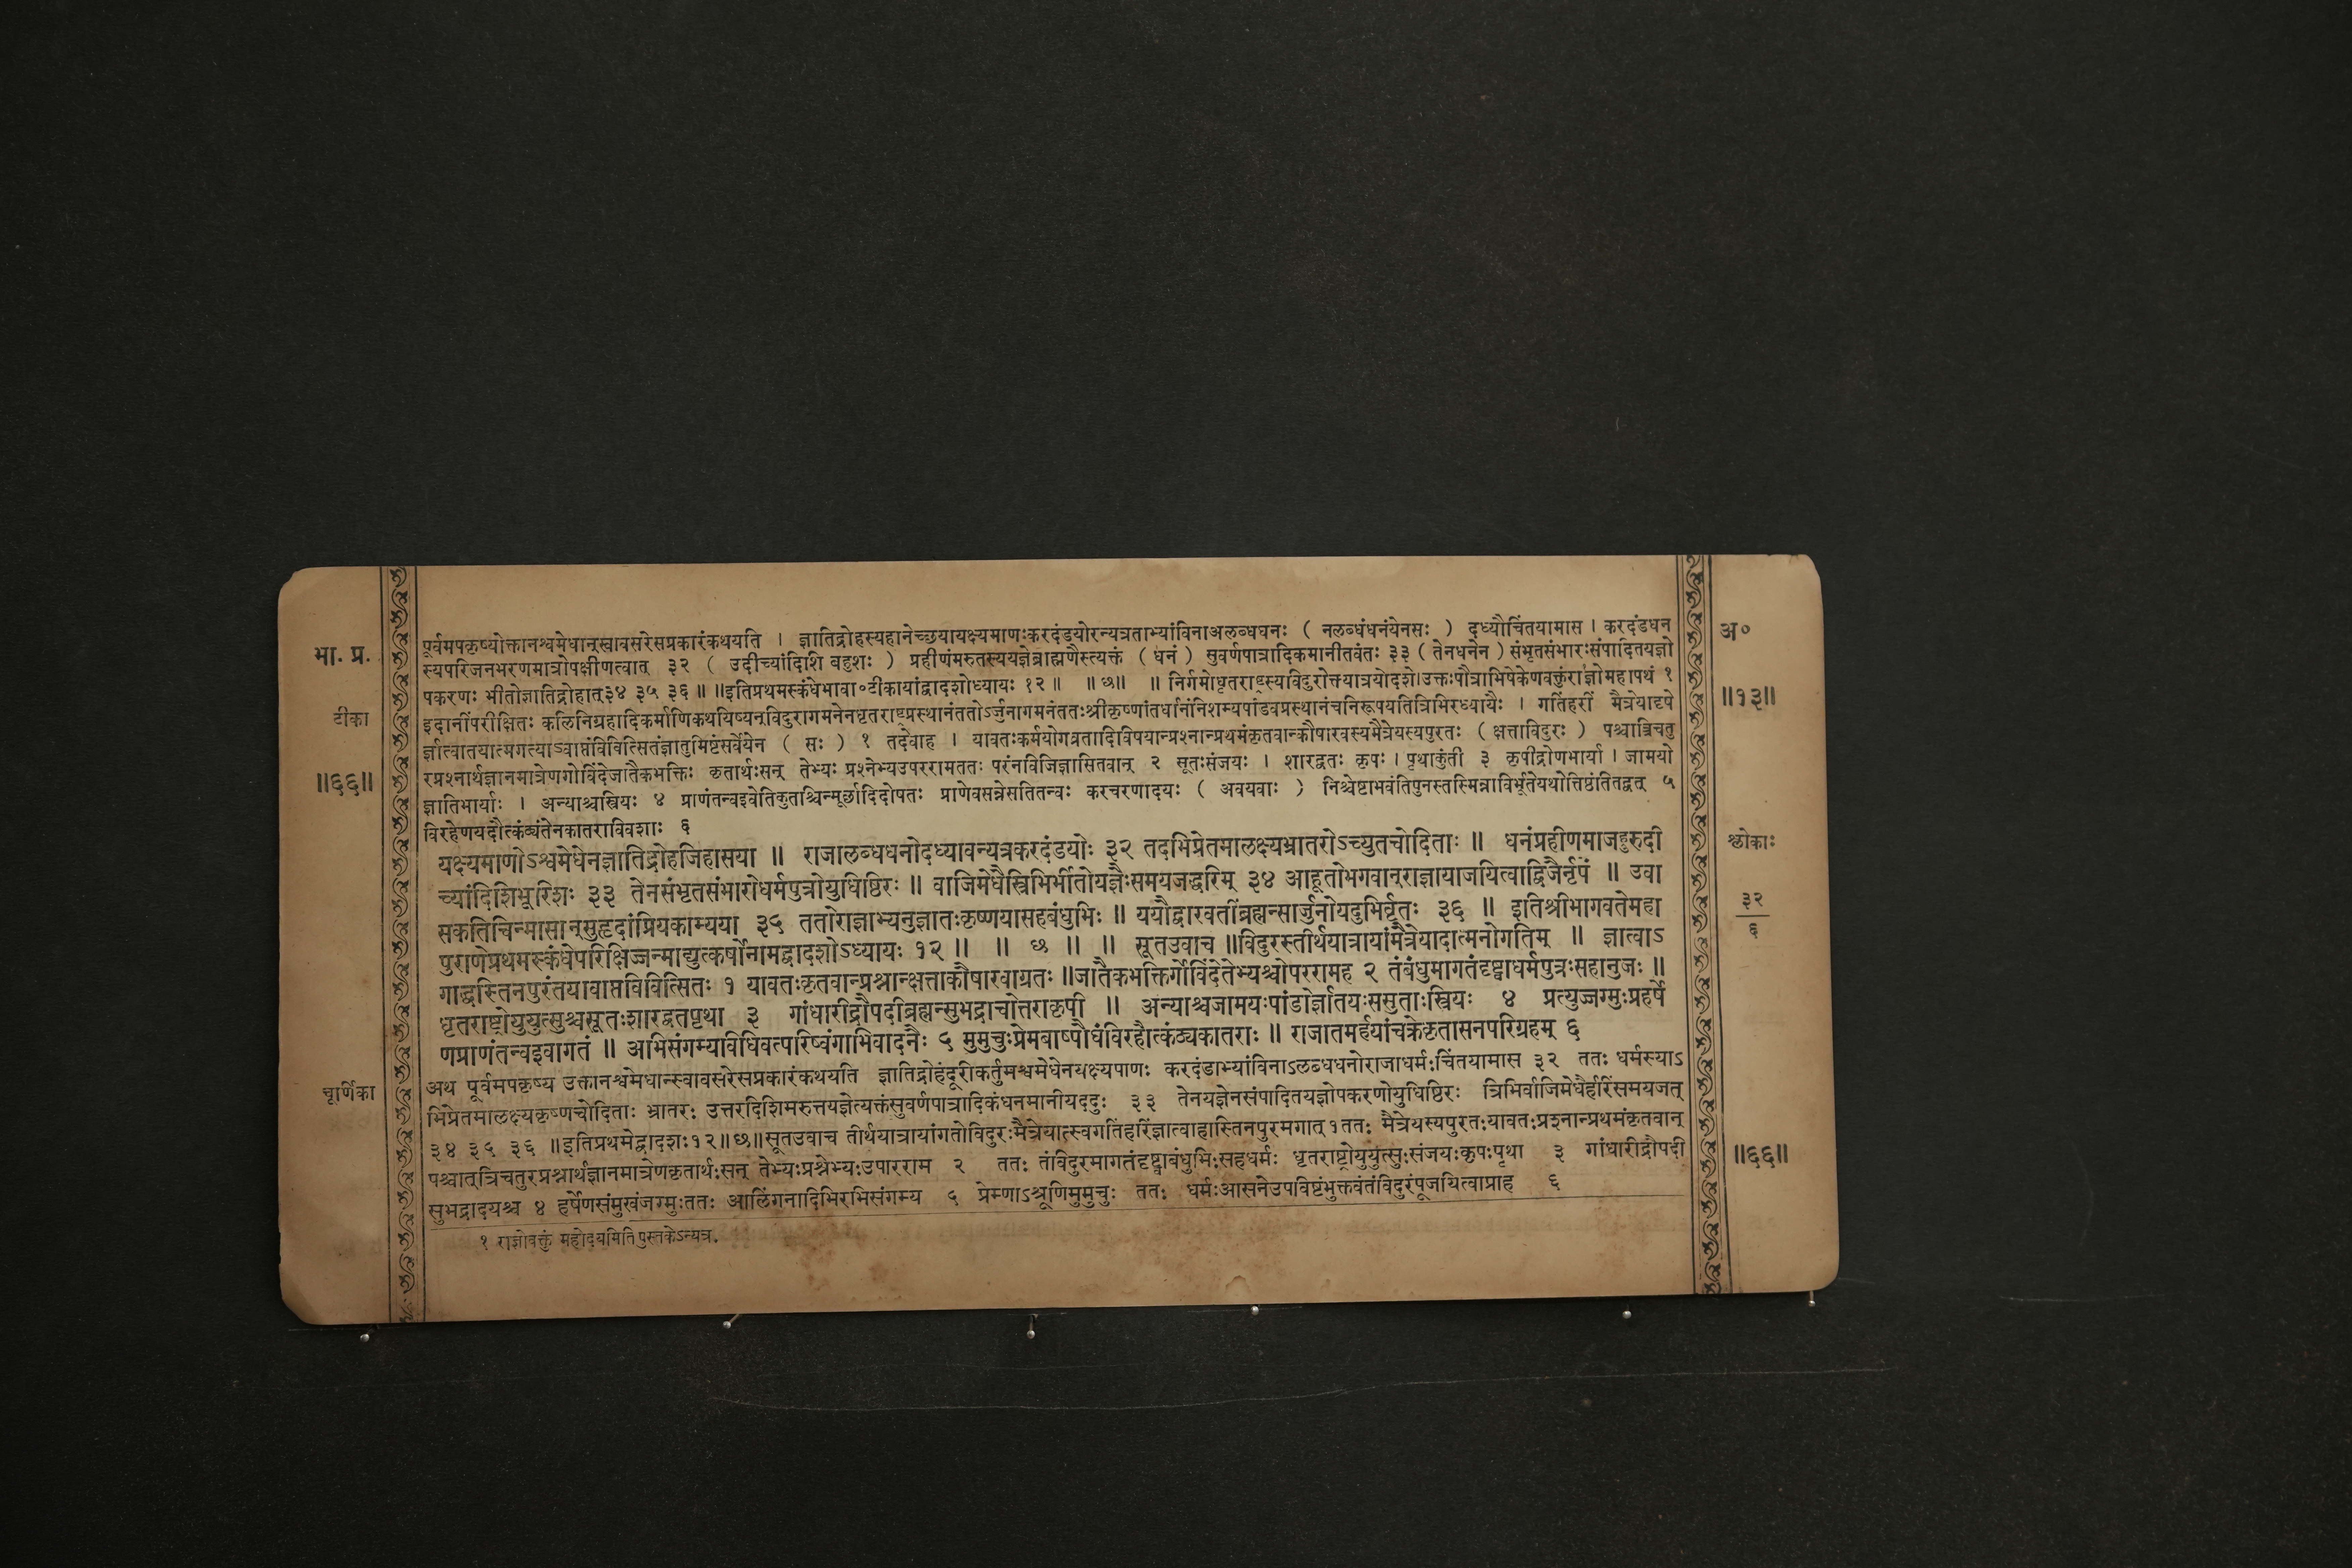 भा. प्र.
टीका
॥६६॥
चूर्णिका
पूर्वमपकृष्योक्तानश्वमेधान्स्वावसरेसप्रकारंकथयति । ज्ञातिद्रोहस्यहानेच्छयायक्ष्यमाणःकरदंडयोरन्यत्रताभ्यांविनाअलब्धधनः ( नलब्धंधनंयेनसः ) दध्यौचिंतयामास । करदंडधन
स्यपरिजनभरणमात्रोपक्षीणत्वात् ३२ ( उदीच्यांदिशि बहुशः ) प्रहीणंमरुतस्ययज्ञेब्राह्मणैस्त्यक्तं ( धनं ) सुवर्णपात्रादिकमानीतवंतः ३३ ( तेनधनेन ) संभृतसंभारःसंपादितयज्ञो
पकरणः भीतोज्ञातिद्रोहात्३४ ३५ ३६ ॥ ॥इतिप्रथमस्कंधेभावा०टीकायांद्वादशोध्यायः १२ ॥ ॥ छ॥ ॥ निर्गमोधृतराष्ट्रस्यविदुरोक्तयात्रयोदशे।उक्तःपौत्राभिषेकेणवक्तुंराज्ञोमहापथं १
इदानींपरीक्षितः कलिनिग्रहादिकर्माणिकथयिष्यन्विदुरागमनेनधृतराष्ट्रप्रस्थानंततोऽर्जुनागमनंततःश्रीकृष्णांतर्धानंनिशम्यपांडवप्रस्थानंचनिरूपयतित्रिभिरध्यायैः । गतिंहरीं मैत्रेयादृषे
र्ज्ञात्वातयात्मगत्याऽवाप्तंविवित्सितंज्ञातुमिष्टंसर्वेयेन ( सः ) १ तदेवाह । यावतःकर्मयोगव्रतादिविषयान्प्रश्नान्प्रथमंकृतवान्कौषारवस्यमैत्रेयस्यपुरतः ( क्षत्ताविदुरः ) पश्चात्रिचतु
रप्रश्नार्थज्ञानमात्रेणगोविंदेजातैकभक्तिः कृतार्थःसन् तेभ्यः प्रश्नेभ्यउपररामततः परंनविजिज्ञासितवान् २ सूतःसंजयः । शारद्वतः कृपः । पृथाकुंती ३ कृपीद्रोणभार्या । जामयो
ज्ञातिभार्याः । अन्याश्चस्त्रियः ४ प्राणंतन्वइवेतिकुताश्चिन्मूर्छादिदोषतः प्राणेवसन्नेसतितन्वः करचरणादयः ( अवयवाः ) निश्चेष्टाभवंतिपुनस्तस्मिन्नाविर्भूतेयथोत्तिष्ठंतितद्वत् ५
विरहेणयदौत्कंठ्यंतेनकातराविवशाः ६
यक्ष्यमाणोऽश्वमेधेनज्ञातिद्रोहजिहासया ॥ राजालब्धधनोदध्यावन्यत्रकरदंडयोः ३२ तदभिप्रेतमालक्ष्यभ्रातरोऽच्युतचोदिताः ॥ धनंप्रहीणमाजहुरुदी
च्यांदिशिभूरिशः ३३ तेनसंभृतसंभारोधर्मपुत्रोयुधिष्ठिरः ॥ वाजिमेधैस्त्रिभिर्भीतोयज्ञैःसमयजद्धरिम् ३४ आहूतोभगवान्राज्ञायाजयित्वाद्विजैर्नृपं ॥ उवा
सकतिचिन्मासान्सुहृदांप्रियकाम्यया ३५ ततोराज्ञाभ्यनुज्ञातःकृष्णयासहबंधुभिः ॥ ययौद्वारवतींब्रह्मन्सार्जुनोयदुभिर्वृतः ३६ ॥ इतिश्रीभागवतेमहा
पुराणेप्रथमस्कंधेपरिक्षिज्जन्माद्युत्कर्षोनामद्वादशोऽध्यायः १२ ॥ ॥ छ ॥ ॥ सूतउवाच ॥विदुरस्तीर्थयात्रायांमैत्रेयादात्मनोगतिम् ॥ ज्ञात्वाऽ
गाद्धास्तिनपुरंतयावाप्तविवित्सितः १ यावतःकृतवान्प्रश्नान्क्षत्ताकौषारवाग्रतः ॥जातैकभक्तिर्गोविंदेतेभ्यश्चोपररामह २ तंबंधुमागतंदृष्ट्वाधर्मपुत्रःसहानुजः ॥
धृतराष्ट्रोयुयुत्सुश्चसूतःशारद्वतपृथा ३ गांधारीद्रौपदीब्रह्मन्सुभद्राचोत्तराकृपी ॥ अन्याश्चजामयःपांडोर्ज्ञातयःससुताःस्त्रियः ४ प्रत्युज्जग्मुःप्रहर्षे
णप्राणंतन्वइवागतं ॥ अभिसंगम्यविधिवत्परिष्वंगाभिवादनैः ५ मुमुचुःप्रेमबाष्पौघंविरहौत्कंठ्यकातराः ॥ राजातमर्हयांचक्रेकृतासनपरिग्रहम् ६
अथ पूर्वमपकृष्य उक्तानश्वमेधान्स्वावसरेसप्रकारंकथयति ज्ञातिद्रोहंदूरीकर्तुमश्वमेधेनयक्ष्यपाणः करदंडाभ्यांविनाऽलब्धधनोराजाधर्मःचिंतयामास ३२ ततः धर्मस्याऽ
भिप्रेतमालक्ष्यकृष्णचोदिताः भ्रातरः उत्तरदिशिमरुत्तयज्ञेत्यक्तंसुवर्णपात्रादिकंधनमानीयददुः ३३ तेनयज्ञेनसंपादितयज्ञोपकरणोयुधिष्ठिरः त्रिभिर्वाजिमेधैर्हरिंसमयजत्
३४ ३५ ३६ ॥इतिप्रथमेद्वादशः१२॥छ॥सूतउवाच तीर्थयात्रायांगतोविदुरःमैत्रेयात्स्वगतिंहरिंज्ञात्वाहास्तिनपुरमगात्१ततः मैत्रेयस्यपुरतःयावतःप्रश्नान्प्रथमंकृतवान्
पश्चात्त्रिचतुरप्रश्नार्थज्ञानमात्रेणकृतार्थःसन् तेभ्यःप्रश्नेभ्यःउपारराम २ ततः तंविदुरमागतंदृष्ट्वाबंधुभिःसहधर्मः धृतराष्ट्रोयुयुत्सुःसंजयःकृपःपृथा ३ गांधारीद्रौपदी
सुभद्रादयश्च ४ हर्षेणसंमुखंजग्मुःततः आलिंगनादिभिरभिसंगम्य ५ प्रेम्णाऽश्रूणिमुमुचुः ततः धर्मःआसनेउपविष्टंभुक्तवंतंविदुरंपूजयित्वाप्राह ६
१ राज्ञोवक्तुं महोदयमिति पुस्तकेऽन्यत्र.
अ०
॥१३॥
श्लोकाः
३२
६
॥६६॥